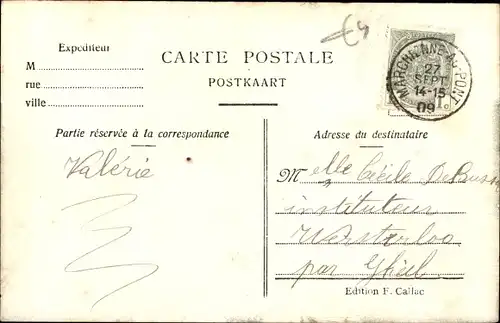 Expéditeur
M
rue
ville
CARTE POSTALE
POSTKAART
MARCHIENNE-AU-PONT
27
SEPT
14-15
09
Partie réservée à la correspondance
Adresse du destinataire
Valérie
Melle Cécile
instituteur
Westerloo
par Gheel
Edition F. Callac